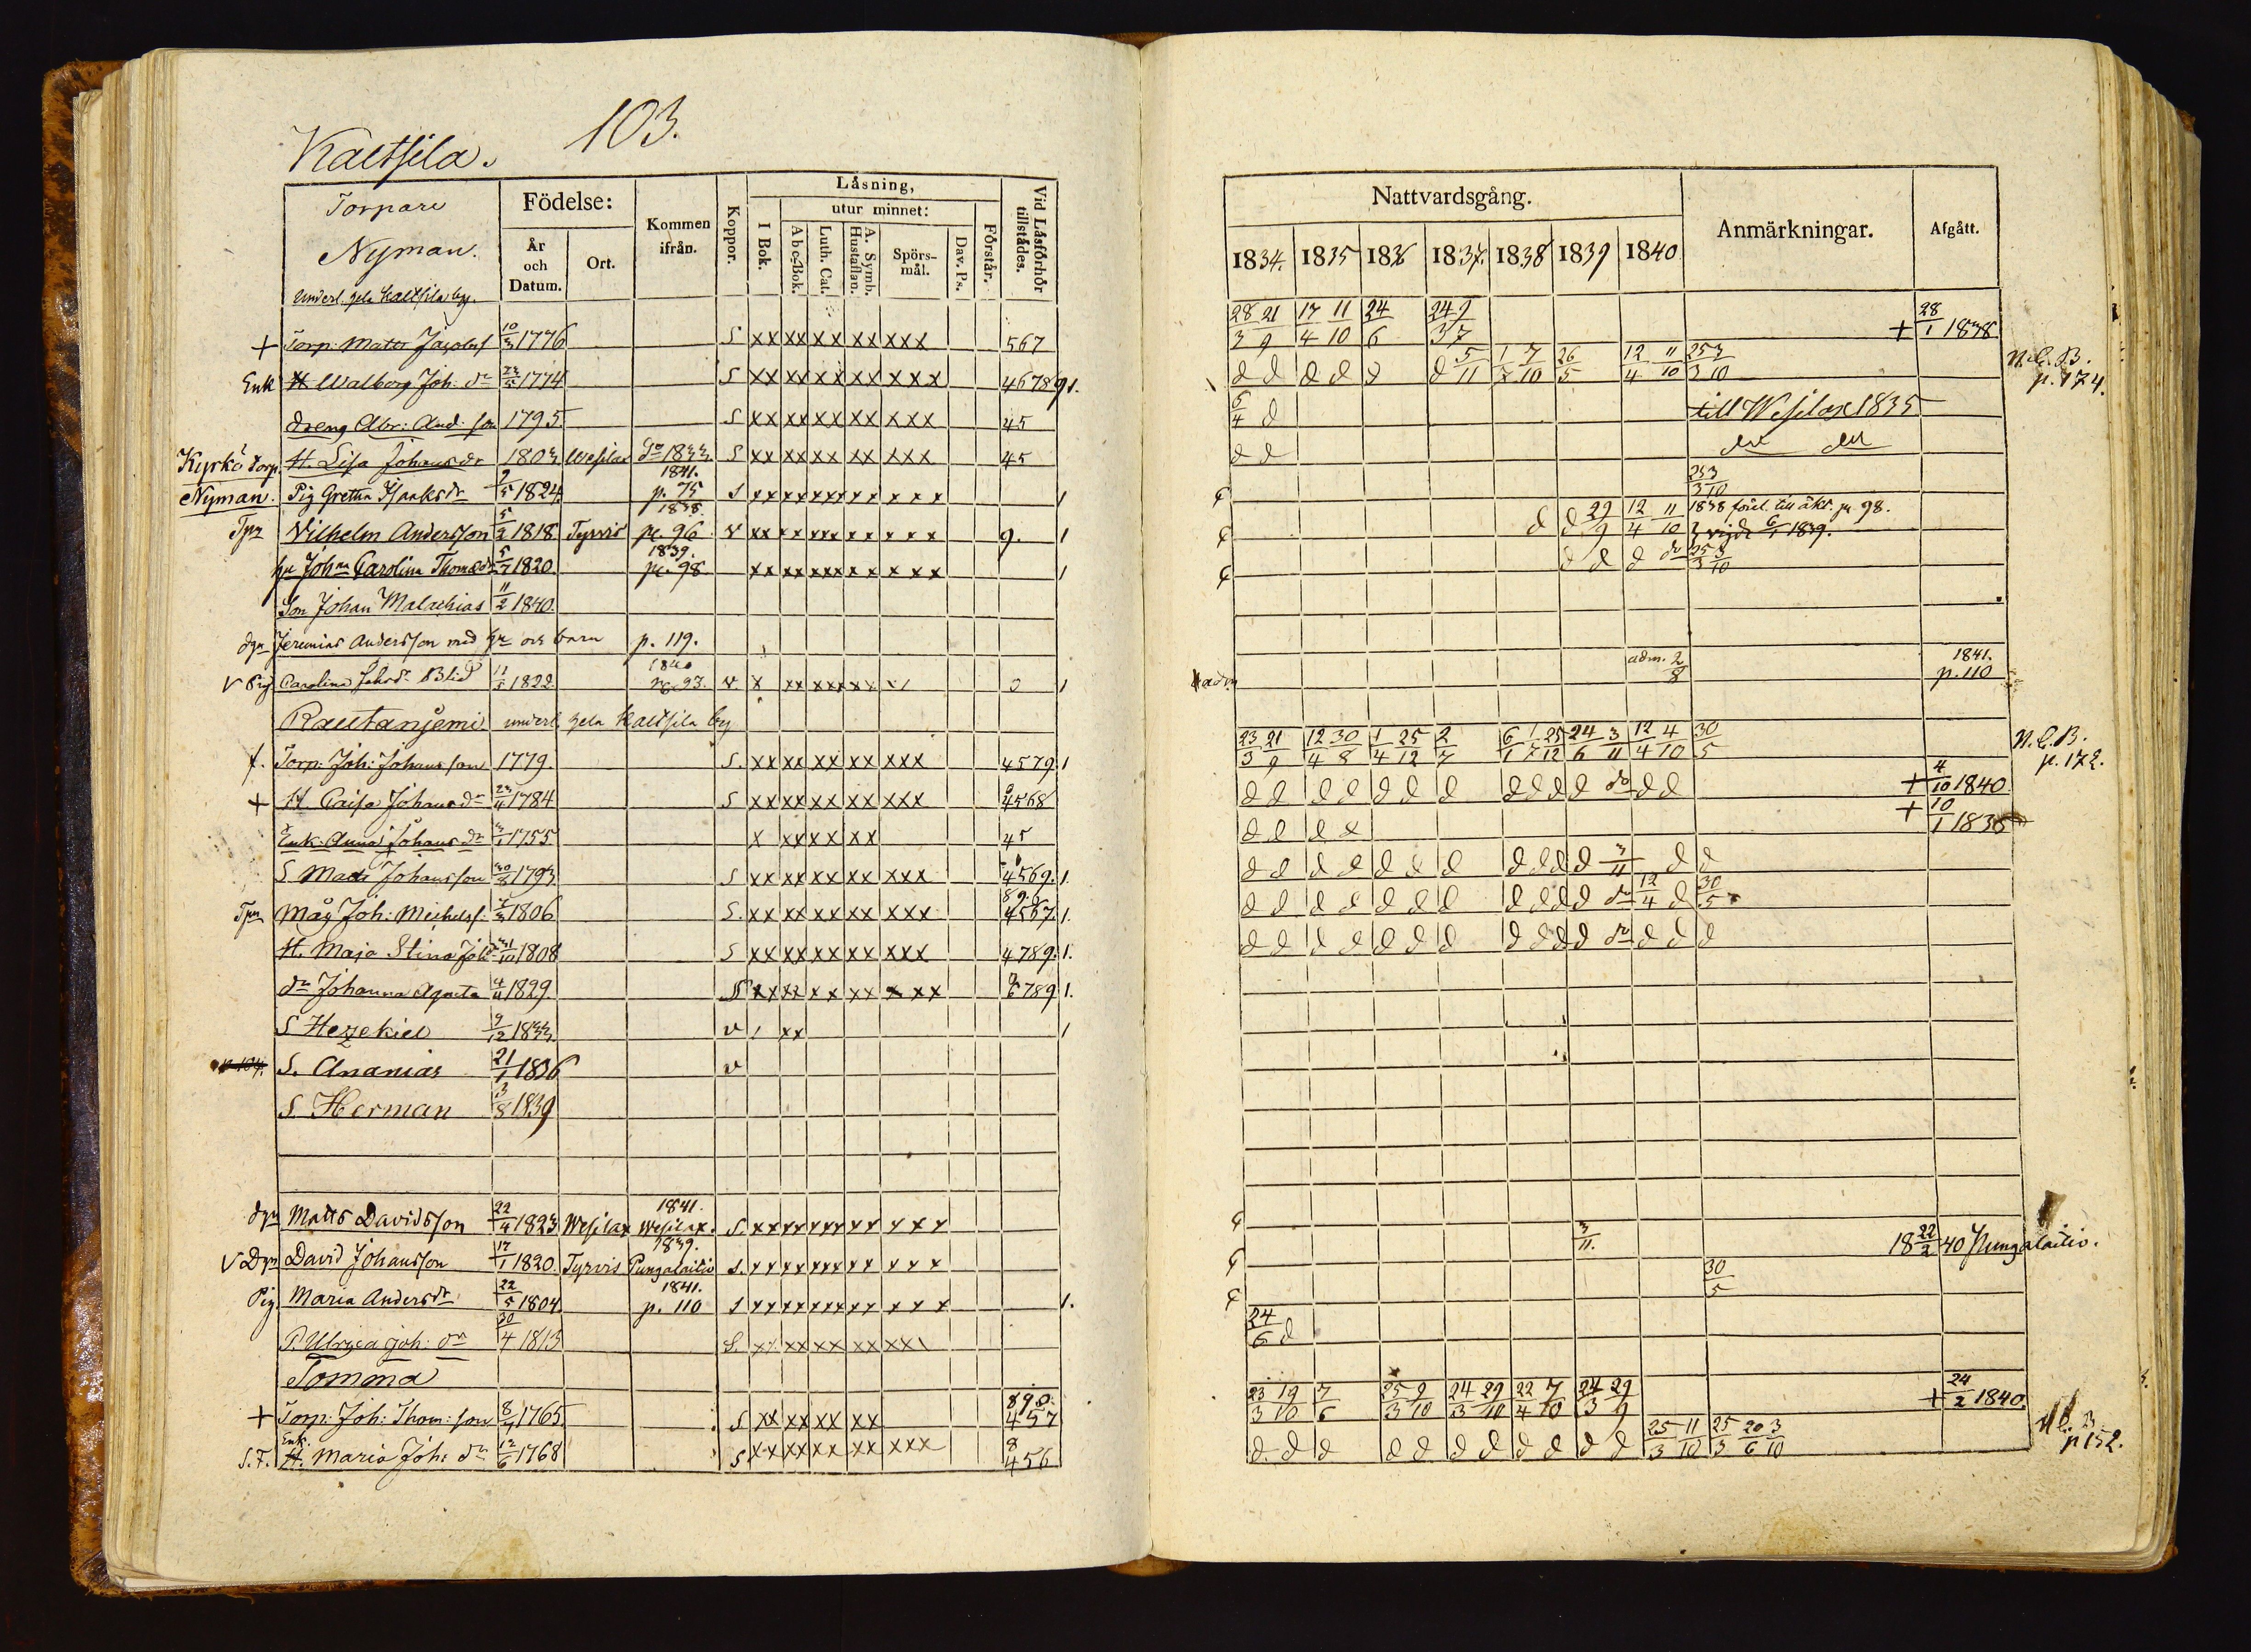 103.
Kaltsila.
Torpare
Nyman.
underl. hela Kaltsila by.
Födelse:
År och Datum.
Ort.
Kommen ifrån.
Koppor.
Läsning,
I Bok.
utur minnet:
Abc-Bok.
Luth. Cat.
A. Symb. Hustaflan.
Spörs-mål.
Dav. Ps.
Förstår.
Vid Läsförhör tillstädes.
+ Torp. Matts Jacobss 10/3 1776 S xx xx xx xx xxx 567
Enk H Walborg Joh. dr 1774 S xx xx xx xx xxx 46789 1.
dreng Abr: And: son 1795. S xx xx xx xx xxx 45
Kyrkö Torp. H. Lisa Johansdr 1803 Wesilax 1833. S xx xx xx xx xxx 45
Nyman. Pig Gretha Isaksdr 1824 1841. p. 75 1
Tpr Wilhelm Andersson 5/2 1818 Tyrvis 1838. pc. 96 v 9. 1
hu Johna Carolina Thomædr 5/7 1820. 1839. pc. 98 1
Son Johan Malachias 11/2 1840.
dgn Jeremias Andersson med hu och barn p. 119.
v Pig Carolina Johsdr Blid 1822. 1840 pc. 93. v. 1
Rautanjemi. underl. hela Kaltsila by
f. Torp: Joh: Johansson 1779. S. xx xx xx xx xxx 4579 1
+ H Caisa Johansdr 23/4 1784 S xx xx xx xx xxx 4568
Enk. Anna Johansdr 1755 x xx xx xx 45
S Matts Johansson 30/8 1793 S xx xx xx xx xxx 4569. 1
Tpr Måg Joh: Michelss. 1806 S. xx xx xx xx xxx 4567. 1.
H. Maja Stina Joh 31/10 1808 S xx xx xx xx xxx 4789. 1.
dr Johanna Agneta 1829. xx xx xx xx x xx 6789 1.
S Hezekiel 9/12 1833. v xx 1
p. 104. S. Ananias 21/1 1836 v
S Herman 3/8 1839
dgn Matts Davidsson 22/4 1823 Wesilax 1841. Wesilax. S.
v Dgn David Johansson 17/1 1820. Tyrvis 1839. Pungalaitio S.
Pig. Maria Andersdr 22/5 1804 1841. p. 110 S 1.
P. Ulrica Joh: dr 30/4 1813 S.
Tomma
+ Torp: Joh: Thom: son 8/7 1765. S xx xx xx xx 890. 457
S. F. Enk. H. Maria Joh: dr 12/6 1768 S xx xx xx xx xxx 8 456
Nattvardsgång.
Anmärkningar.
Afgått.
1834. 1835 1836 1837. 1838 1839 1840
28/3 21/9 17/4 11/10 24/6 24/3 9/7 + 28/1 1838.
d d d d d d 5/11 7/10 26/5 12/4 11/10 25/3 3/10 N. C. B. p. 174.
5/4 d till Wesilax 1835
d d
25/3 3/10
d d 29/9 12/4 11/10 1838 förel. till äkt. pc. 98. vigde 6/1 1839.
d d d do 25/3 3/10
adm. 2/8 1841. p. 110
23/3 21/9 12/4 30/8 1/4 25/12 2/7 6/1 1/7 25/12 24/6 3/11 12/4 4/10 30/5 N. C. B. p. 172.
d d d d d d d d d d d do d d + 4/10 1840.
d d d x + 10/1 1836
d d d d d d d d d d d 3/11 d d
d d d d d d d d d d d do 12/4 d 30/5
d d d d d d d d d d d do d d d
3/11. 18 22/2 40 Pungalaitio.
30/5
24/6 d
23/3 19/10 7/6 25/3 9/10 24/3 29/10 22/4 7/10 24/3 29/9 + 24/2 1840.
d. d d d d d d d d d d 25/3 11/10 25/3 20/6 3/10 N. C. B p 152.